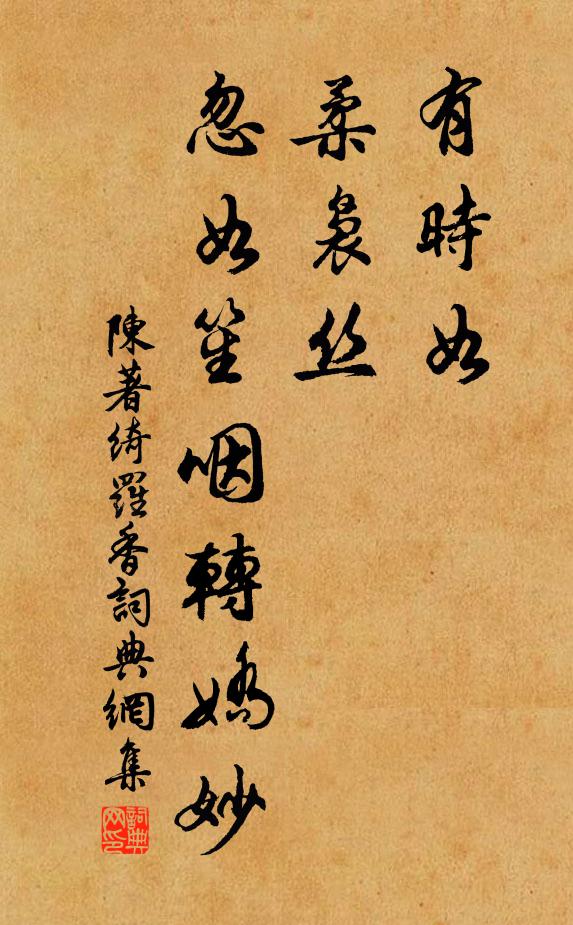 有時如
柔裊丝
忽如笙咽轉嬌妙
陳著綺羅香詞典網集
詞典网印